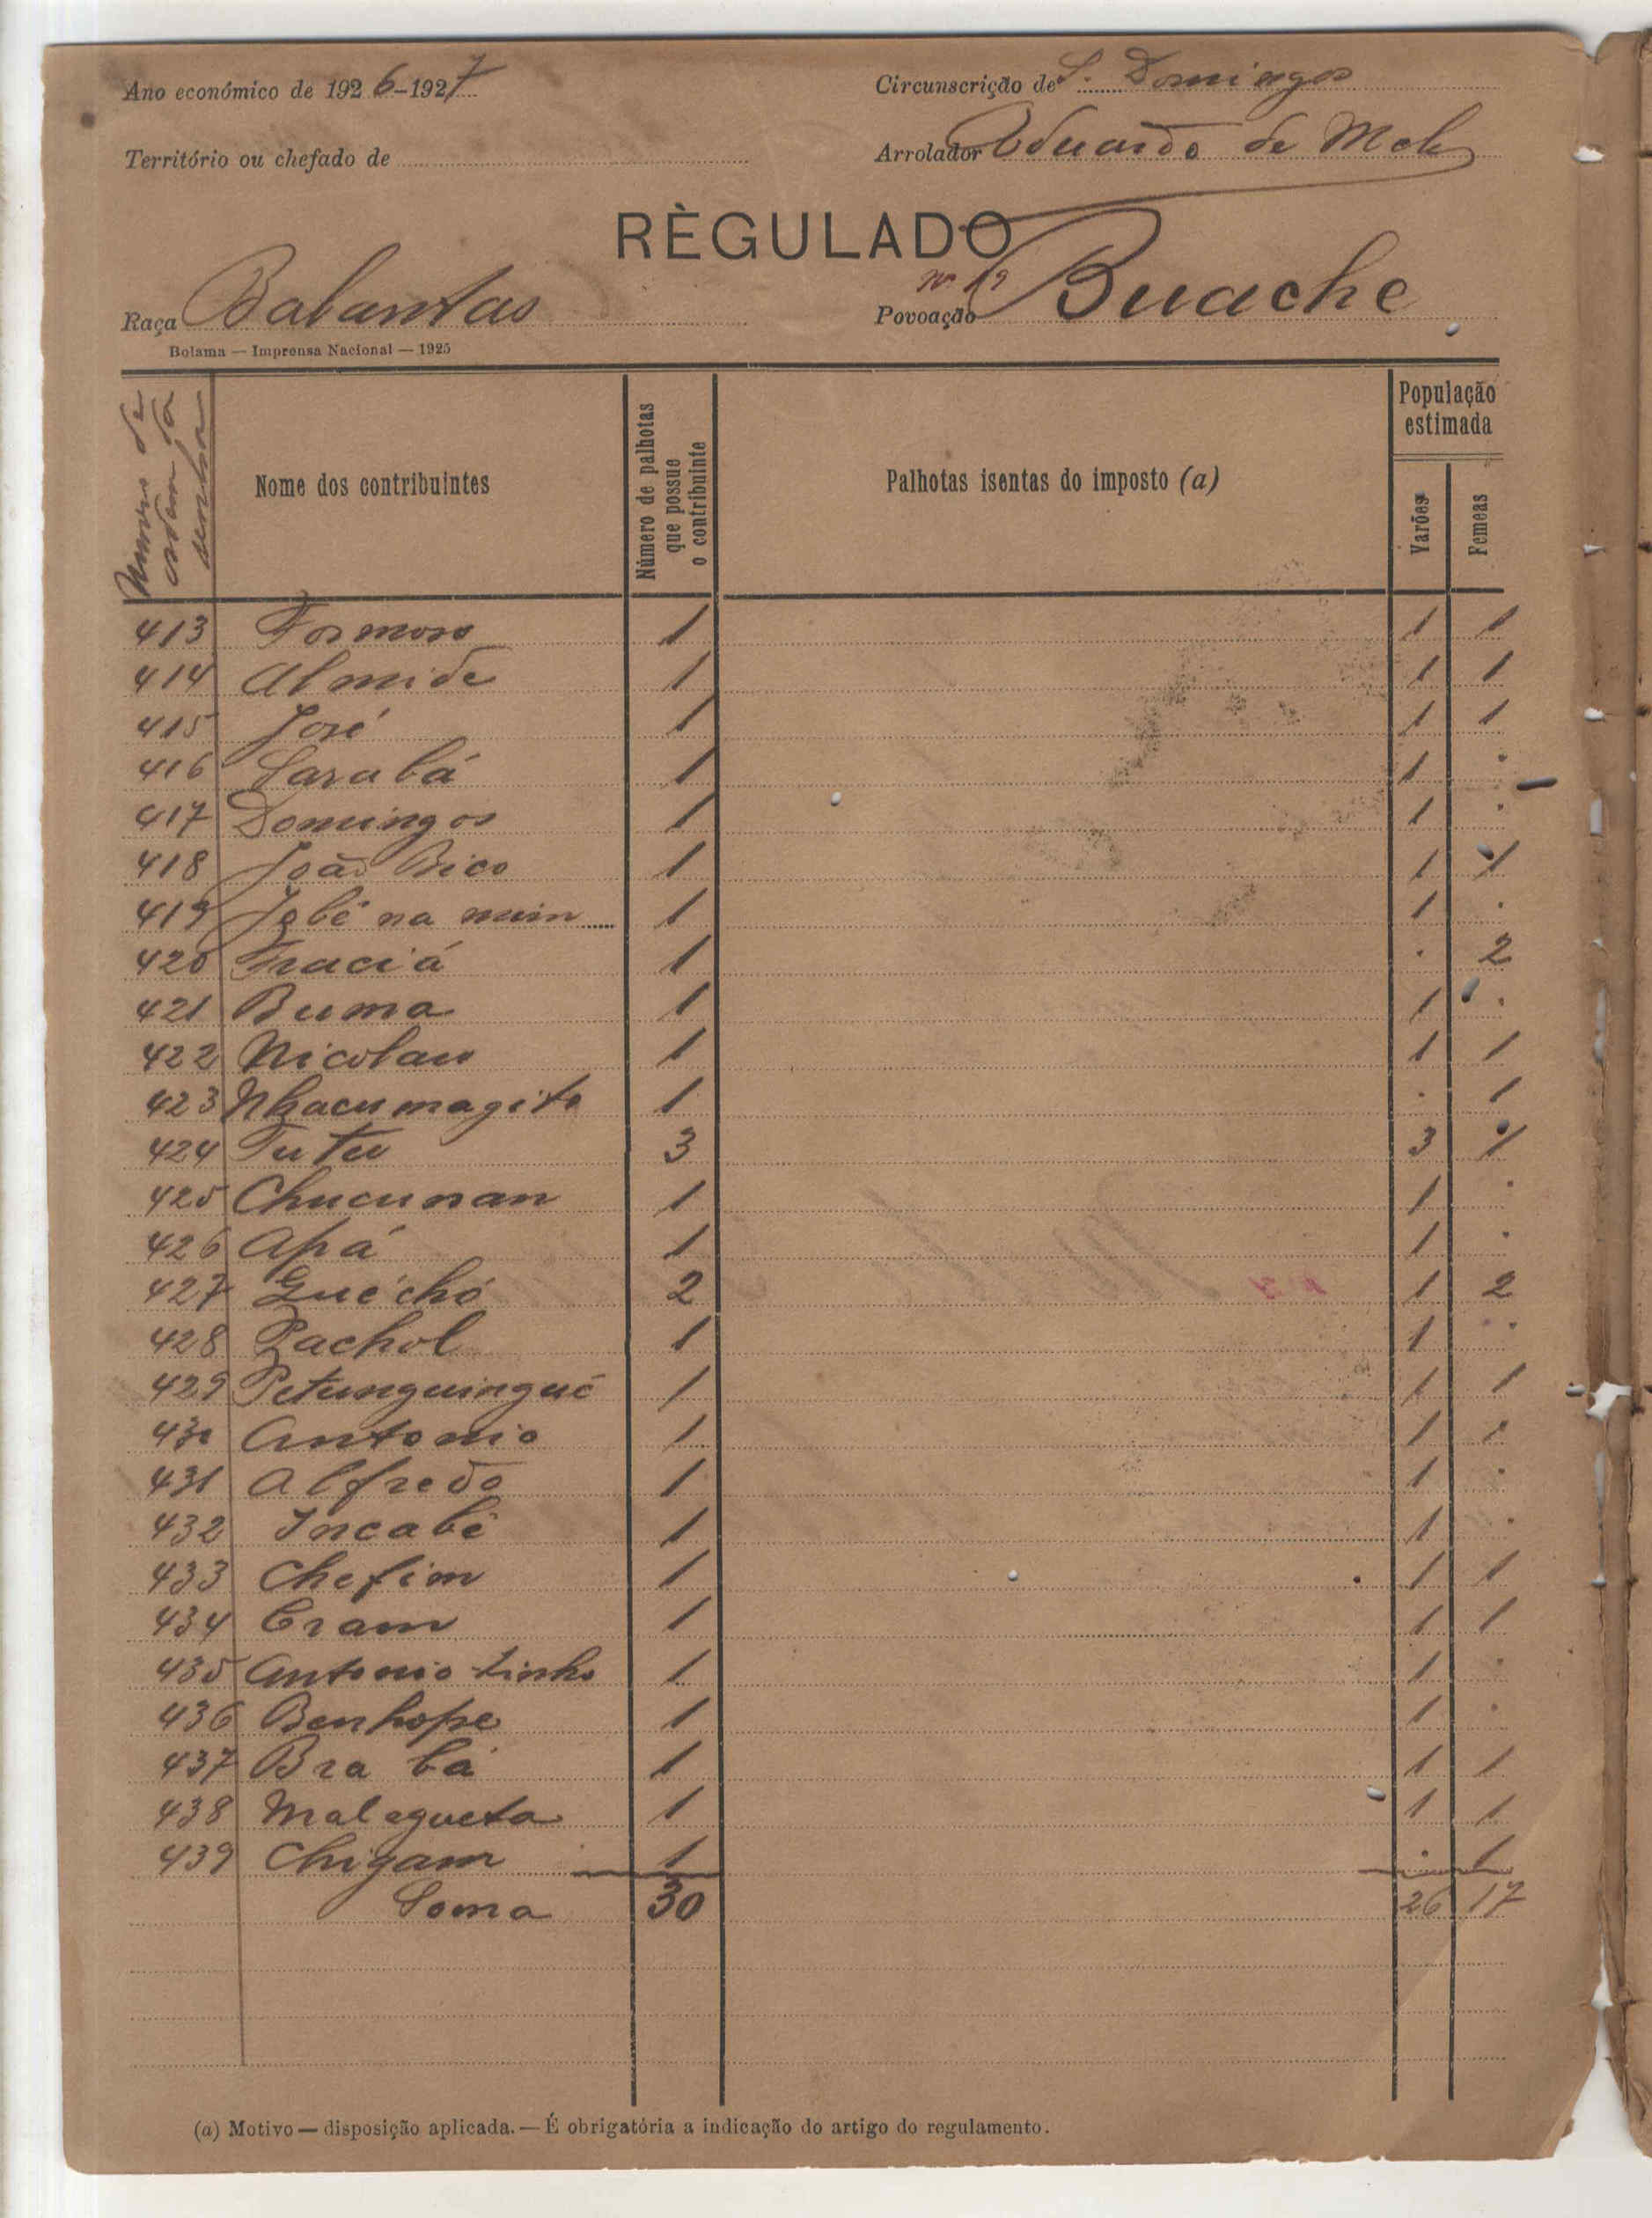 Ano económico de 1926-1927
Circunscrição de S. Domingos
Território ou chefado de
Arrolador Eduardo de Melo
RÈGULADO
Nº 19
Raça Balantas
Povoação Buache
Bolama — Imprensa Nacional — 1925
Numero de ordem da senha
Nome dos contribuintes
Número de palhotas que possue o contribuinte
Palhotas isentas do imposto (a)
População estimada
Varões
Femeas
413 Formoso 1 1 1
414 Almide 1 1 1
415 José 1 1 1
416 Sarabá 1 1 .
417 Domingos 1 1 .
418 João Bico 1 1 1
419 Jabé na muin 1 1 .
420 Fraciá 1 . 2
421 Buma 1 1 .
422 Nicolau 1 1 1
423 Nhacumagite 1 . 1
424 Tutu 3 3 1
425 Chucunan 1 1 .
426 Apá 1 1 .
427 Guéchó 2 1 2
428 Pachol 1 1 .
429 Petunguingué 1 1 1
430 Antonio 1 1 1
431 Alfredo 1 1 .
432 Incabé 1 1 .
433 Chefim 1 1 1
434 Cram 1 1 1
435 Antonio tinho 1 1 .
436 Benhope 1 1 .
437 Bra bá 1 1 1
438 Malagueta 1 1 1
439 Chigam 1 . 1
Soma 30 26 17
(a) Motivo — disposição aplicada. — É obrigatória a indicação do artigo do regulamento.